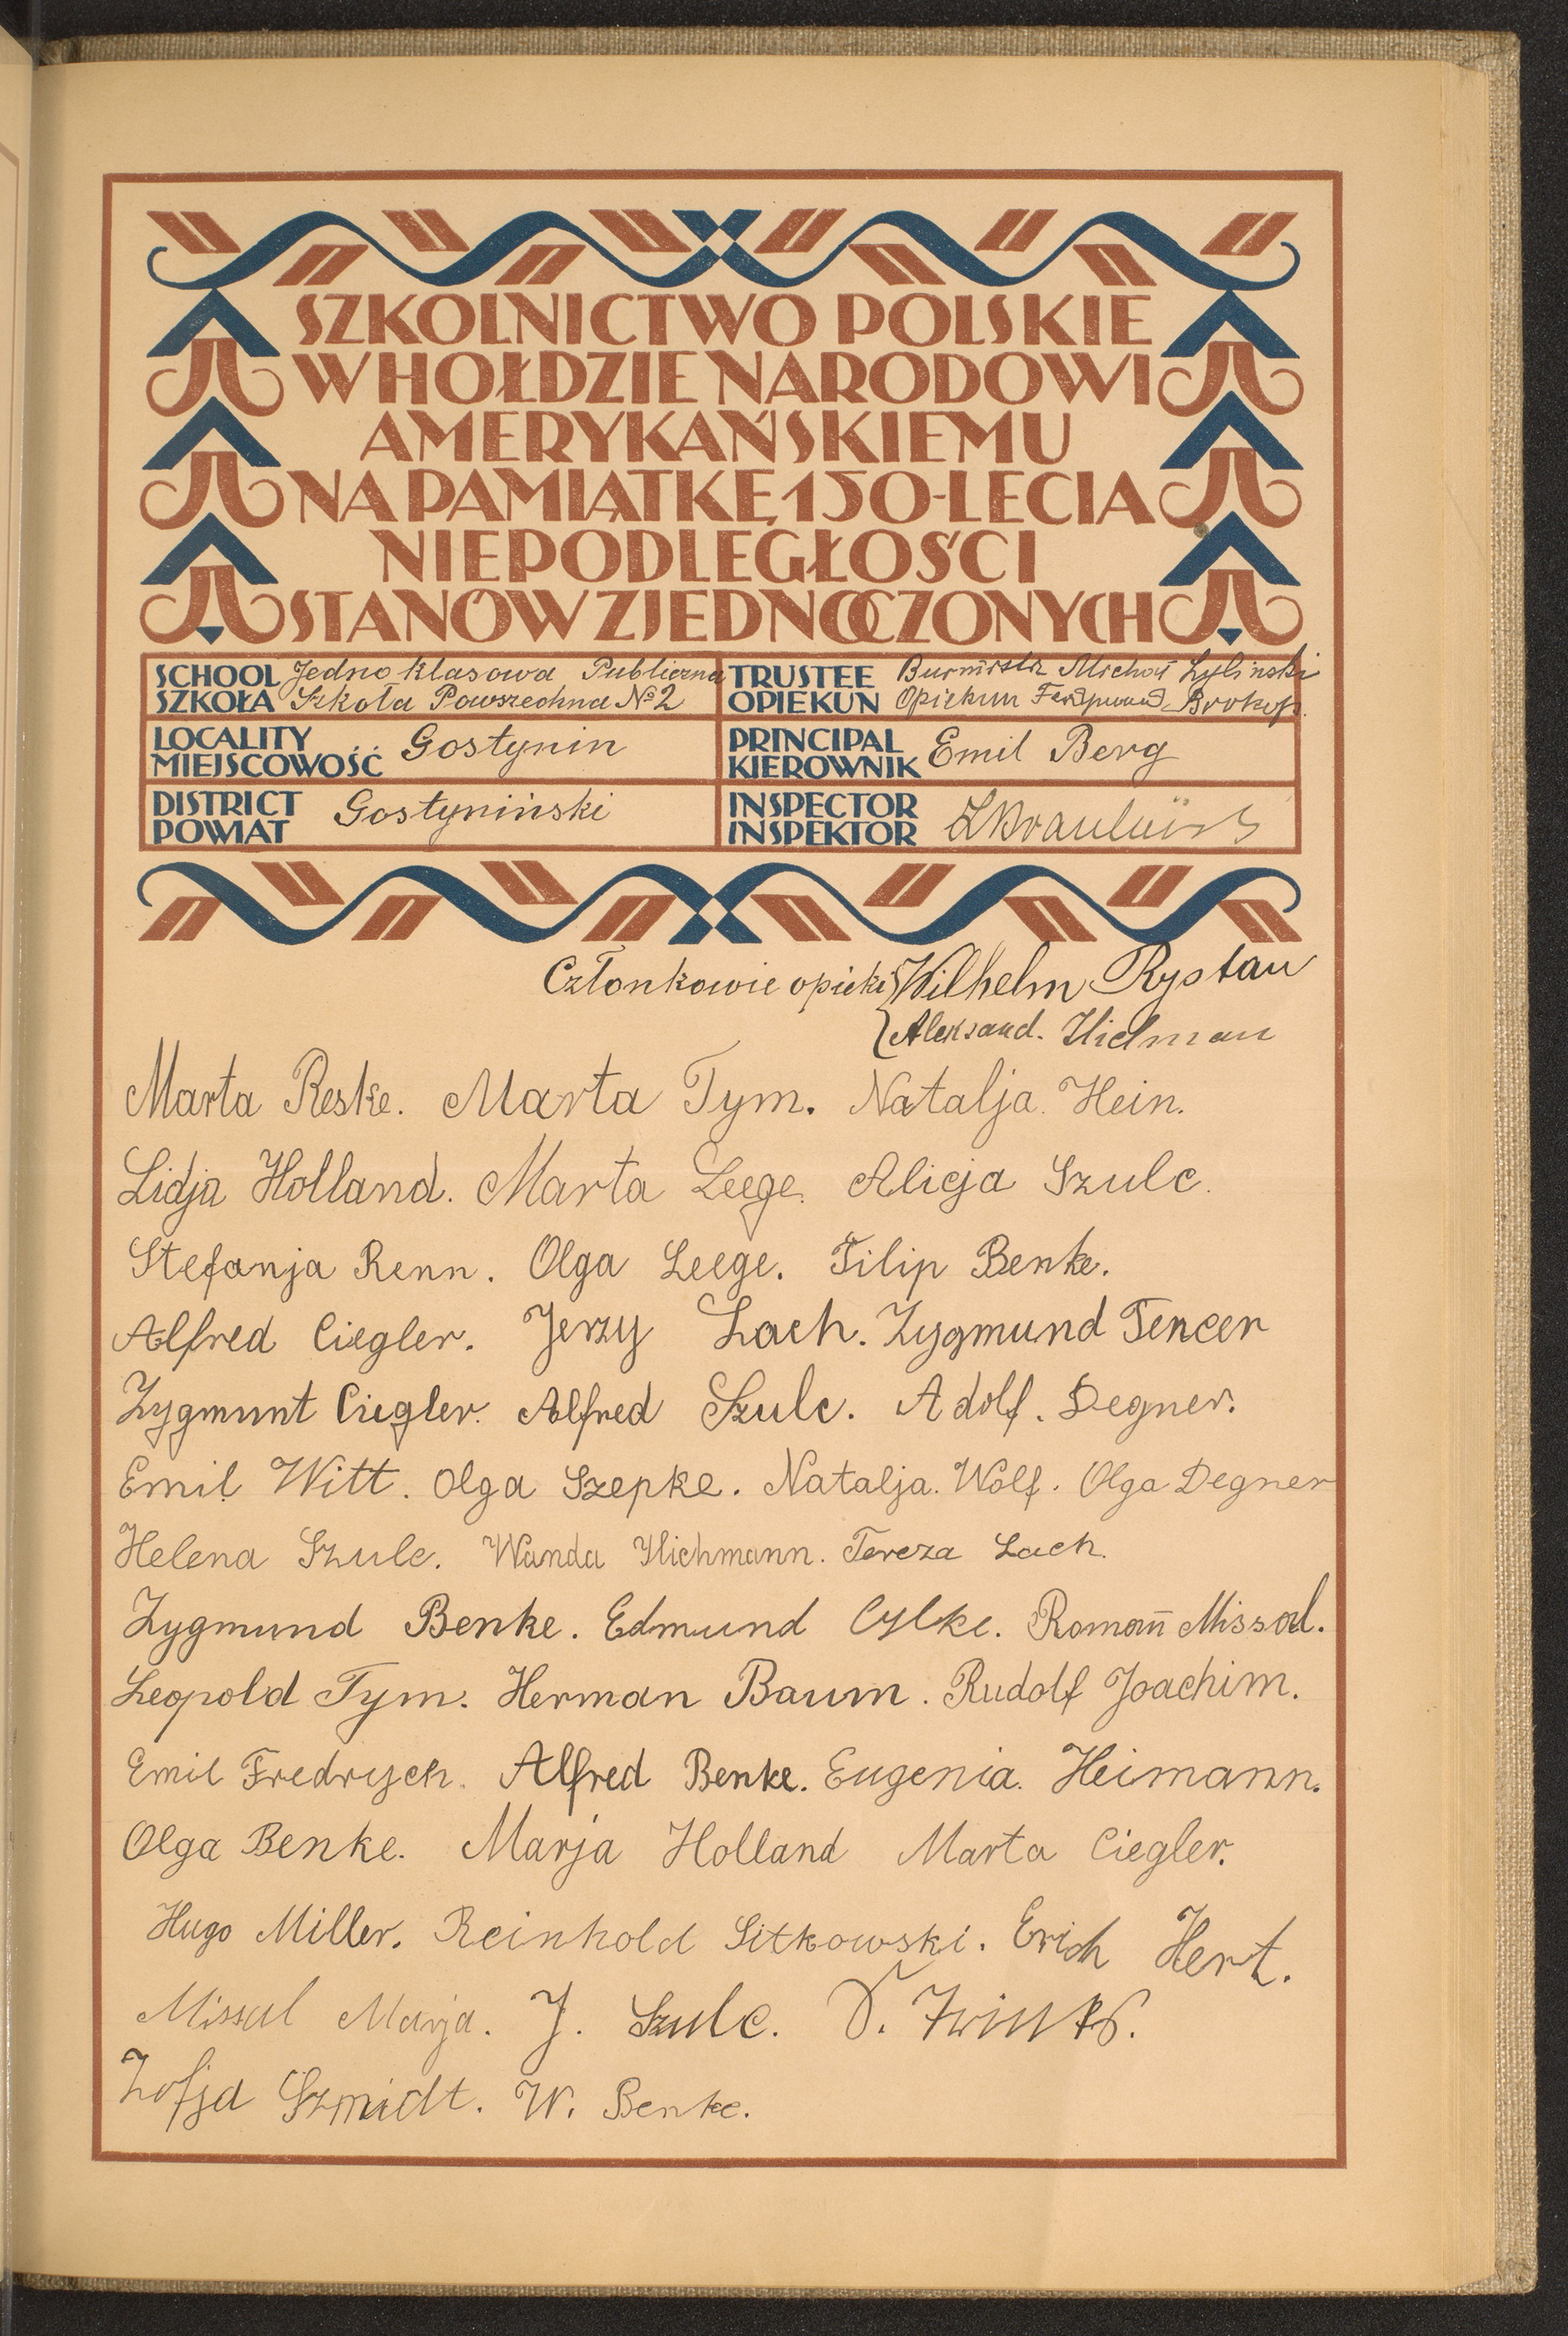 SZKOLNICTWO POLSKIE
W HOŁDZIE NARODOWI
AMERYKAŃSKIEMU
NA PAMIĄTKĘ 150-LECIA
NIEPODLEGŁOŚCI
STANÓW ZJEDNOCZONYCH
SCHOOL SZKOŁA Jedno klasowa Publiczna
Szkoła Powszechna № 2
TRUSTEE OPIEKUN Burmistr Michał Żyliński
Opiekun Ferdynand Brokop
LOCALITY MIEJSCOWOŚĆ Gostynin
PRINCIPAL KIEROWNIK Emil Berg
DISTRICT POWIAT Gostyniński
INSPECTOR INSPEKTOR
Członkowie opieki { Wilhelm Rystau
{ Aleksand. Hielman
Marta Reske. Marta Tym. Natalja. Hein.
Lidja Holland. Marta Leege. Alicja Szulc.
Stefanja Renn. Olga Leege. Filip Benke.
Alfred Ciegler. Jerzy Lach. Zygmund Fencer
Zygmunt Ciegler. Alfred Szulc. Adolf. Degner.
Emil Witt. Olga Szepke. Natalja. Wolf. Olga Degner
Helena Szulc. Wanda Hichmann. Tereza Lach.
Zygmund Benke. Edmund Cylke. Roman̄ Missal.
Leopold Tym. Herman Baum. Rudolf Joachim.
Emil Fredrych. Alfred Benke. Eugenia. Heimann.
Olga Benke. Marja Holland Marta Ciegler.
Hugo Miller. Reinhold Sitkowski. Erich Hert.
Missal Marja. J. Szulc.
Zofja Szmidt. W. Benke.